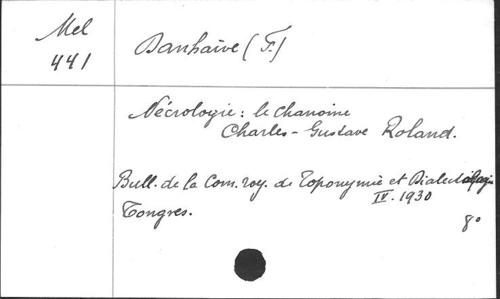 Mel
441
Danhaive (F.)
Nécrologie: le Chanoine
Charles-Gustave Roland.
Bull. de la Com. roy. de Toponymie et Dialectologie
IV. 1930
Tongres.
8°